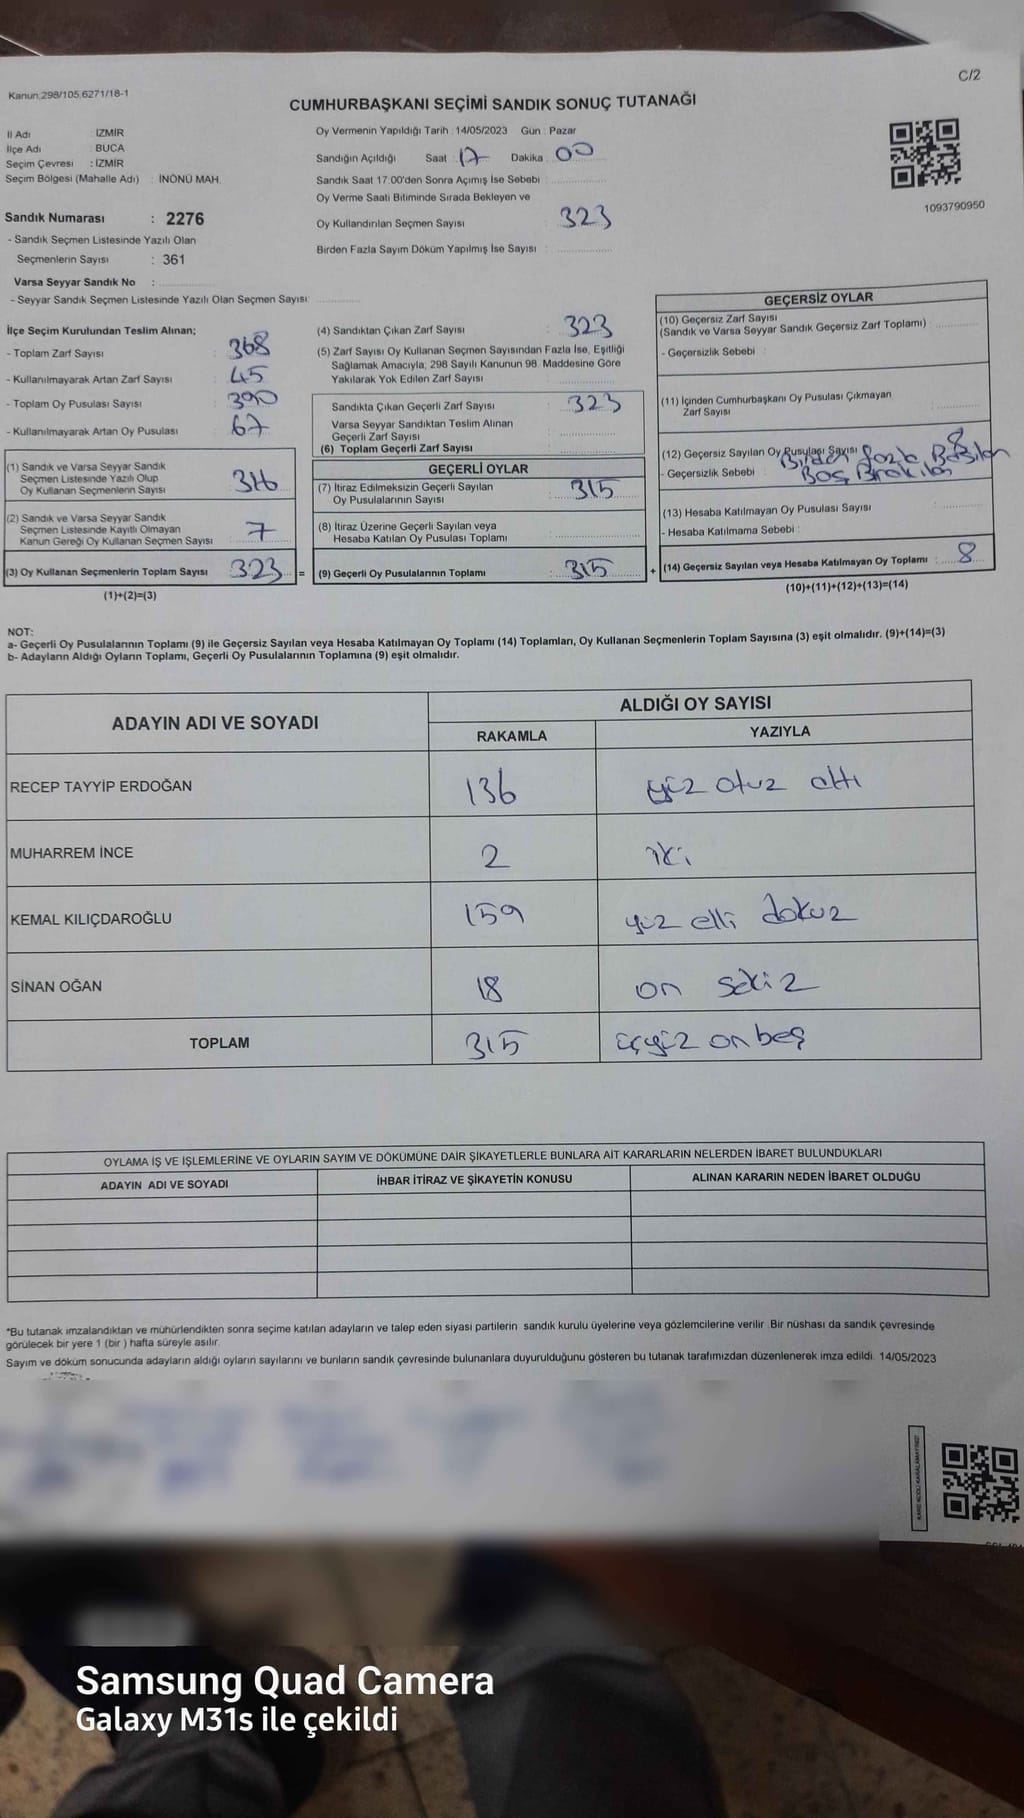 C/2
Kanun:298/105,6271/18-1
CUMHURBAŞKANI SEÇİMİ SANDIK SONUÇ TUTANAĞI
İl Adı : İZMİR
İlçe Adı : BUCA
Seçim Çevresi : İZMİR
Seçim Bölgesi (Mahalle Adı) : İNÖNÜ MAH.
Sandık Numarası : 2276
- Sandık Seçmen Listesinde Yazılı Olan
Seçmenlerin Sayısı : 361
Varsa Seyyar Sandık No :
- Seyyar Sandık Seçmen Listesinde Yazılı Olan Seçmen Sayısı:
Oy Vermenin Yapıldığı Tarih : 14/05/2023 Gün : Pazar
Sandığın Açıldığı Saat : 17 Dakika : 00
Sandık Saat 17:00'den Sonra Açımış İse Sebebi :
Oy Verme Saati Bitiminde Sırada Bekleyen ve
Oy Kullandırılan Seçmen Sayısı : 323
Birden Fazla Sayım Döküm Yapılmış İse Sayısı :
1093790950
İlçe Seçim Kurulundan Teslim Alınan;
- Toplam Zarf Sayısı : 368
- Kullanılmayarak Artan Zarf Sayısı : 45
- Toplam Oy Pusulası Sayısı : 390
- Kullanılmayarak Artan Oy Pusulası : 67
(1) Sandık ve Varsa Seyyar Sandık
Seçmen Listesinde Yazılı Olup
Oy Kullanan Seçmenlerin Sayısı 316
(2) Sandık ve Varsa Seyyar Sandık
Seçmen Listesinde Kayıtlı Olmayan
Kanun Gereği Oy Kullanan Seçmen Sayısı : 7
(3) Oy Kullanan Seçmenlerin Toplam Sayısı 323 =
(1)+(2)=(3)
(4) Sandıktan Çıkan Zarf Sayısı : 323
(5) Zarf Sayısı Oy Kullanan Seçmen Sayısından Fazla İse, Eşitliği
Sağlamak Amacıyla, 298 Sayılı Kanunun 98. Maddesine Göre
Yakılarak Yok Edilen Zarf Sayısı :
Sandıkta Çıkan Geçerli Zarf Sayısı : 323
Varsa Seyyar Sandıktan Teslim Alınan
Geçerli Zarf Sayısı :
(6) Toplam Geçerli Zarf Sayısı :
GEÇERLİ OYLAR
(7) İtiraz Edilmeksizin Geçerli Sayılan
Oy Pusulalarının Sayısı : 315
(8) İtiraz Üzerine Geçerli Sayılan veya
Hesaba Katılan Oy Pusulası Toplamı :
(9) Geçerli Oy Pusulalarının Toplamı : 315 +
GEÇERSİZ OYLAR
(10) Geçersiz Zarf Sayısı
(Sandık ve Varsa Seyyar Sandık Geçersiz Zarf Toplamı) :
- Geçersizlik Sebebi :
(11) İçinden Cumhurbaşkanı Oy Pusulası Çıkmayan
Zarf Sayısı :
(12) Geçersiz Sayılan Oy Pusulası Sayısı : 8
- Geçersizlik Sebebi : Birden fazla Basılan
Boş Bırakılan
(13) Hesaba Katılmayan Oy Pusulası Sayısı :
- Hesaba Katılmama Sebebi :
(14) Geçersiz Sayılan veya Hesaba Katılmayan Oy Toplamı : 8
(10)+(11)+(12)+(13)=(14)
NOT:
a- Geçerli Oy Pusulalarının Toplamı (9) ile Geçersiz Sayılan veya Hesaba Katılmayan Oy Toplamı (14) Toplamları, Oy Kullanan Seçmenlerin Toplam Sayısına (3) eşit olmalıdır. (9)+(14)=(3)
b- Adayların Aldığı Oyların Toplamı, Geçerli Oy Pusulalarının Toplamına (9) eşit olmalıdır.
ADAYIN ADI VE SOYADI ALDIĞI OY SAYISI
RAKAMLA YAZIYLA
RECEP TAYYİP ERDOĞAN 136 yüz otuz altı
MUHARREM İNCE 2 iki
KEMAL KILIÇDAROĞLU 159 yüz elli dokuz
SİNAN OĞAN 18 on sekiz
TOPLAM 315 üçyüz on beş
OYLAMA İŞ VE İŞLEMLERİNE VE OYLARIN SAYIM VE DÖKÜMÜNE DAİR ŞİKAYETLERLE BUNLARA AİT KARARLARIN NELERDEN İBARET BULUNDUKLARI
ADAYIN ADI VE SOYADI İHBAR İTİRAZ VE ŞİKAYETİN KONUSU ALINAN KARARIN NEDEN İBARET OLDUĞU
*Bu tutanak imzalandıktan ve mühürlendikten sonra seçime katılan adayların ve talep eden siyasi partilerin sandık kurulu üyelerine veya gözlemcilerine verilir .Bir nüshası da sandık çevresinde
görülecek bir yere 1 (bir ) hafta süreyle asılır.
Sayım ve döküm sonucunda adayların aldığı oyların sayılarını ve bunların sandık çevresinde bulunanlara duyurulduğunu gösteren bu tutanak tarafımızdan düzenlenerek imza edildi. 14/05/2023
KARE KODU KARALAMAYINIZ!
Samsung Quad Camera
Galaxy M31s ile çekildi